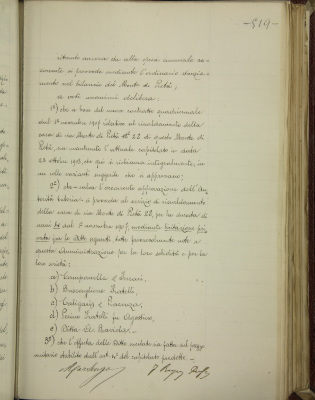 -519-
ritenuto ancora che alla spesa annuale re-
si provvede mediante l'ordinario stanzia-
mento nel bilancio del Monte di Pietà;
a voti unanimi delibera:
1º) che a base del nuovo contratto quadriennale
dal 1º novembre 1907 relativo al riscaldamento della
casa di via Monte di Pietà Nº 22 di questo Monte di
Pietà, sia mantenuto l'attuale capitolato in data
23 ottobre 1903, che qui si richiama integralmente, in
un colle varianti suggerite che si approvano;
2º) che salva l'occorrente approvazione dell'Au-
torità tutoria si provveda al servizio di riscaldamento
della casa di via Monte di Pietà 22, per la durata di
anni dal 1º novembre 1907, mediante licitazione pri-
vata fra le Ditte seguenti tutte favorevolmente note a
questa Amministrazione per la loro solidità e per la
loro serietà:
a) Campanella e
b) Buscaglione Fratelli,
c) e Piacenza,
d) Penino Fratelli fu Agostino,
e) Ditta
3º) che l'offerta delle Ditte invitate sia fatta sul prezzo
unitario stabilito dall'art. 4º del capitolato predetto.-